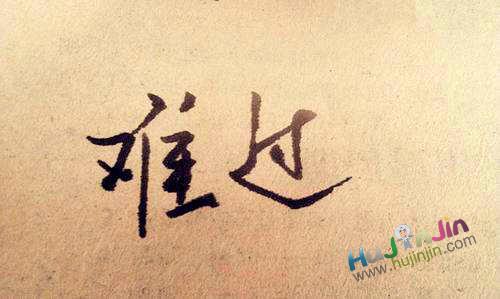 难过
HuJinJin
www.hujinjin.com